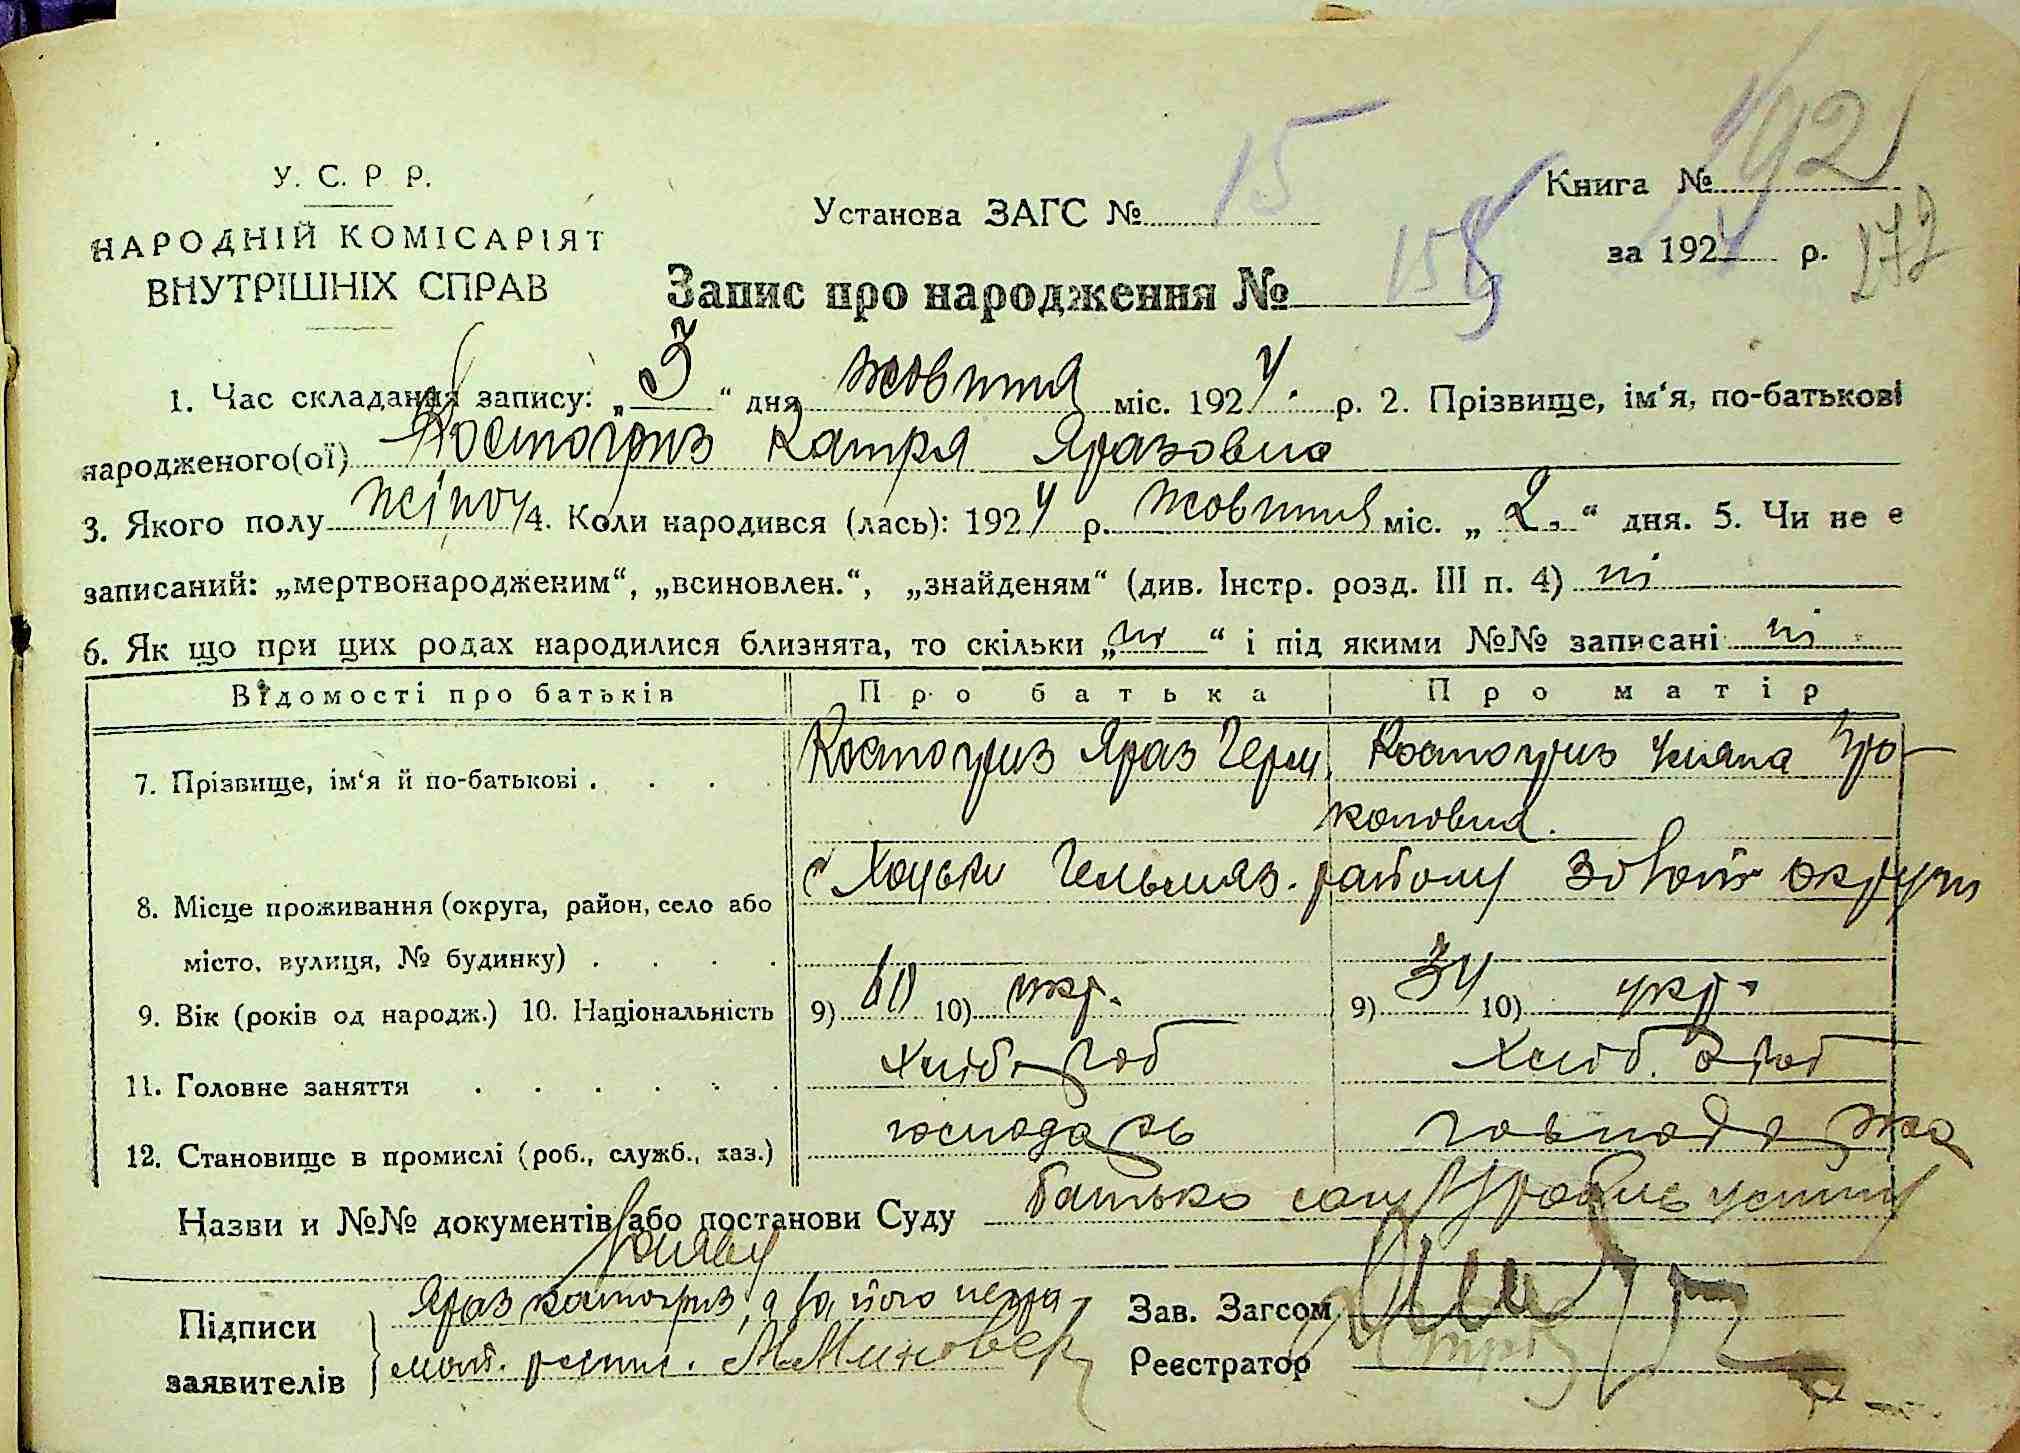 У. С. Р. Р.
НАРОДНІЙ КОМІСАРІЯТ
ВНУТРІШНІХ СПРАВ
Установа ЗАГС № 15
Книга №
за 1924 р.
172
Запис про народження № 158
1. Час складання запису: „3“ дня жовтня міс. 1924. р. 2. Прізвище, ім‘я, по-батькові
народженого(ої) Костогриз Катря Яразовна
3. Якого полу жіноч 4. Коли народився (лась): 1924 р. жовтня міс. „2.“ дня. 5. Чи не є
записаний: „мертвонародженим“, „всиновлен.“, „знайденям“ (див. Інстр. розд. III п. 4) ні
6. Як що при цих родах народилися близнята, то скільки „ні“ і під якими №№ записані ні
Відомості про батьків Про батька Про матір
7. Прізвище, ім‘я й по-батькові . . . . Костогриз Яраз Костогриз Уляна Про-
коповна.
8. Місце проживання (округа, район, село або Хоцьки Гельмяз. району округи
місто, вулиця, № будинку) . . . .
9. Вік (років од народж.) 10. Національність 9) 60 10) укр. 9) 34 10) укр.
11. Головне заняття . . . . . . Хліб. роб Хліб. роб
12. Становище в промислі (роб., служб., хаз.) господарь господарка
Назви и №№ документів або постанови Суду батько сам зробив устну
заяву
Підписи
заявителів
Яраз Костогриз, а за його негра-
мот. роспис.
Зав. Загсом
Реєстратор